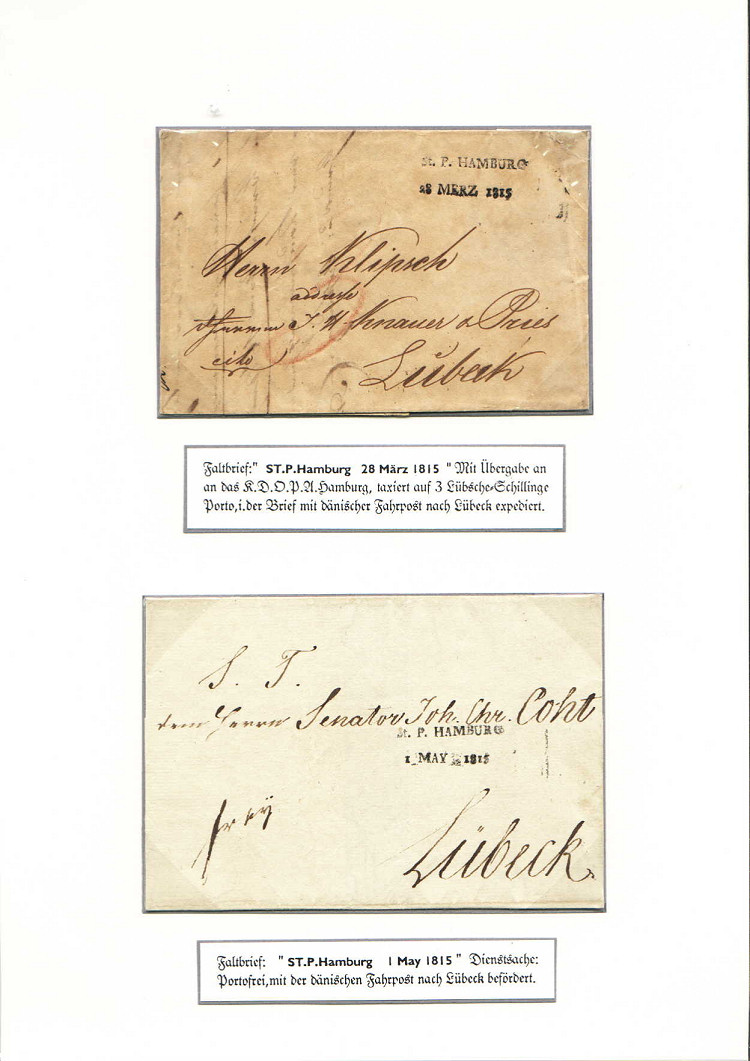 St. P. HAMBURG
28 MERZ 1815
Herrn Klipsch
addresse
Herren J. H. Knauer & Pries
cito
Lübeck
Faltbrief:" ST.P.Hamburg 28 März 1815 " Mit Übergabe an
an das K.D.O.P.A.Hamburg, taxiert auf 3 Lübsche-Schillinge
Porto,i.der Brief mit dänischer Fahrpost nach Lübeck expediert.
S. T.
dem Herrn Senator Joh. Chr. Coht
St. P. HAMBURG
1 MAY 1815
frey
Lübeck.
Faltbrief: " ST.P.Hamburg 1 May 1815 " Dienstsache:
Portofrei,mit der dänischen Fahrpost nach Lübeck befördert.